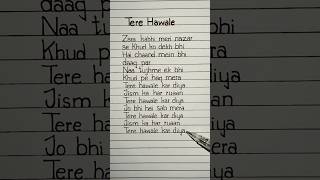 Tere Hawale
Zara kabhi meri nazar
se Khud ko dekh bhi
Hai chaand mein bhi
daag par
Naa tujhme ek bhi
Khud pe haq mera
Tere hawale kar diya
Jism ka har ruaan
Tere hawale kar diya
Jo bhi hai sab mera
Tere hawale kar diya
Jism ka har ruaan
Tere hawale kar diya